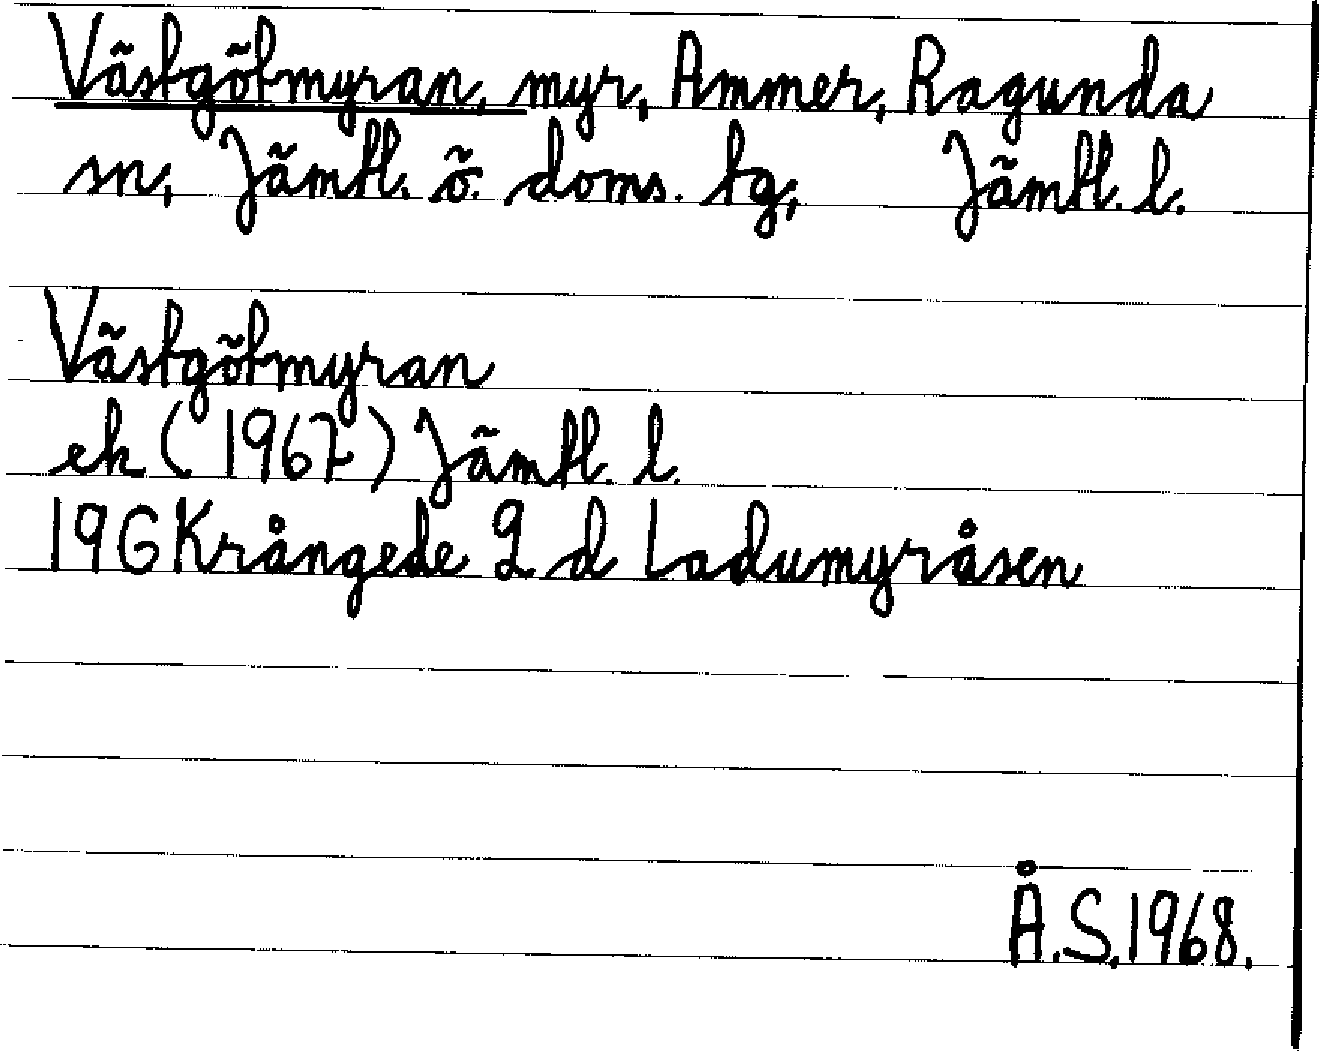 Västgötmyran, myr, Ammer, Ragunda
sn, Jämtl. ö. doms. tg, Jämtl. l.
Västgötmyran
ek (1967) Jämtl. l.
19G Krångede 2 d Ladumyråsen
Å.S. 1968.